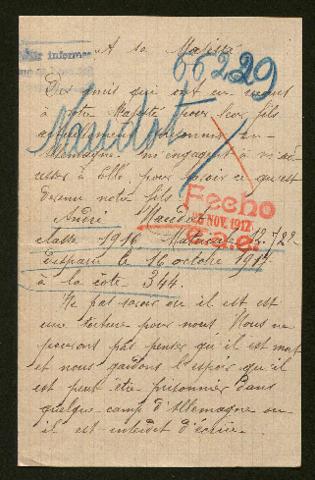 A sa Majesté
Pour informer
66229
Des amis qui ont eu recours
à Votre Majesté pour leur fils
actuellement prisonnier en
Allemagne m'engagent à m'a-
dresser à Elle pour savoir ce qu'est
devenu notre fils
Naudot
André Naudot
classe 1916 Matricule 12.722
disparu le 16 octobre 1917
à la côte 344.
Fecho
NOV. 1917
Ne pas savoir où il est est
une torture pour nous. Nous ne
pouvons pas penser qu'il est mort
et nous gardons l'espoir qu'il
est peut être prisonnier dans
quelque camp d'Allemagne où
il est interdit d'écrire.